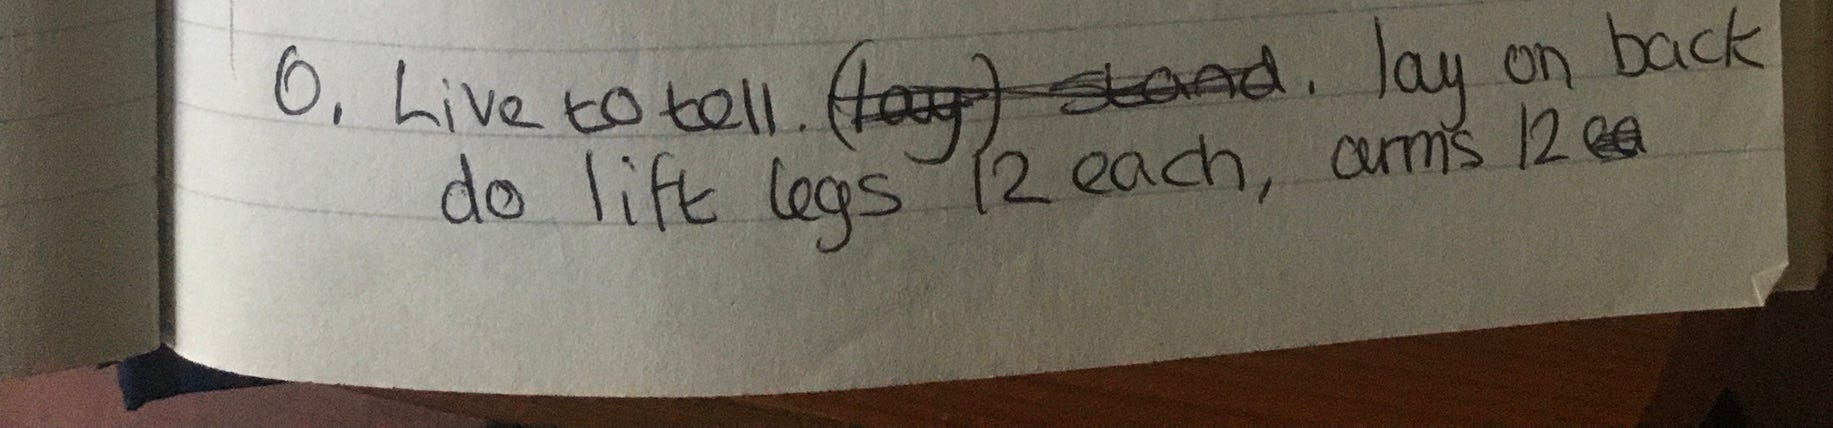 O. Live to tell. (lay) stand. lay on back
do lift legs 12 each, arms 12 ea